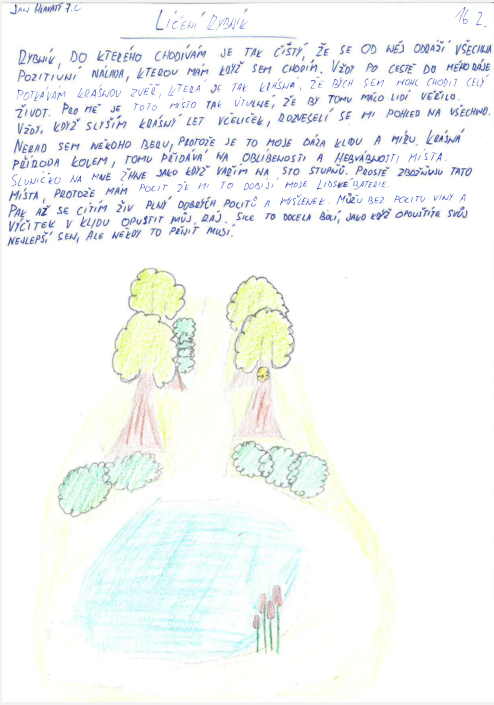 JAN HLAVATÝ 7.C
LÍČENÍ RYBNÍK
16.2.
RYBNÍK, DO KTERÉHO CHODÍVÁM JE TAK ČISTÝ, ŽE SE OD NĚJ ODRAŽÍ VŠECHNA
POZITIVNÍ NÁLADA, KTEROU MÁM KDYŽ SEM CHODÍM. VŽDY PO CESTĚ DO MÉHO RÁJE
POTKÁVÁM KRÁSNOU ZVĚŘ, KTERÁ JE TAK KRÁSNÁ, ŽE BYCH SEM MOHL CHODIT CELÝ
ŽIVOT. PRO MĚ JE TOTO MÍSTO TAK ÚTULNÉ, ŽE BY TOMU MÁLO LIDÍ VĚŘILO.
VŽDY, KDYŽ SLYŠÍM KRÁSNÝ LET VČELIČEK, ROZVESELÍ SE MI POHLED NA VŠECHNO.
NERAD SEM NĚKOHO BERU, PROTOŽE JE TO MOJE OÁZA KLIDU A MÍRU. KRÁSNÁ
PŘÍRODA KOLEM, TOMU PŘIDÁVÁ NA OBLÍBENOSTI A MÍSTA.
SLUNÍČKO NA MNE ŽHNE JAKO KDYŽ VAŘÍM NA STO STUPŇŮ. PROSTĚ ZBOŽŇUJU TATO
MÍSTA, PROTOŽE MÁM POCIT ŽE MI TO DOBÍJÍ MOJE LIDSKÉ BATERIE.
PAK AŽ SE CÍTÍM ŽIV PLNÝ DOBRÝCH POCITŮ A MYŠLENEK. MŮŽU BEZ POCITU VINY A
VÝČITEK V KLIDU OPUSTIT MŮJ RÁJ. SICE TO DOCELA BOLÍ, JAKO KDYŽ OPOUŠTÍTE SVŮJ
NEJLEPŠÍ SEN, ALE NĚKDY TO PŘIJÍT MUSÍ.